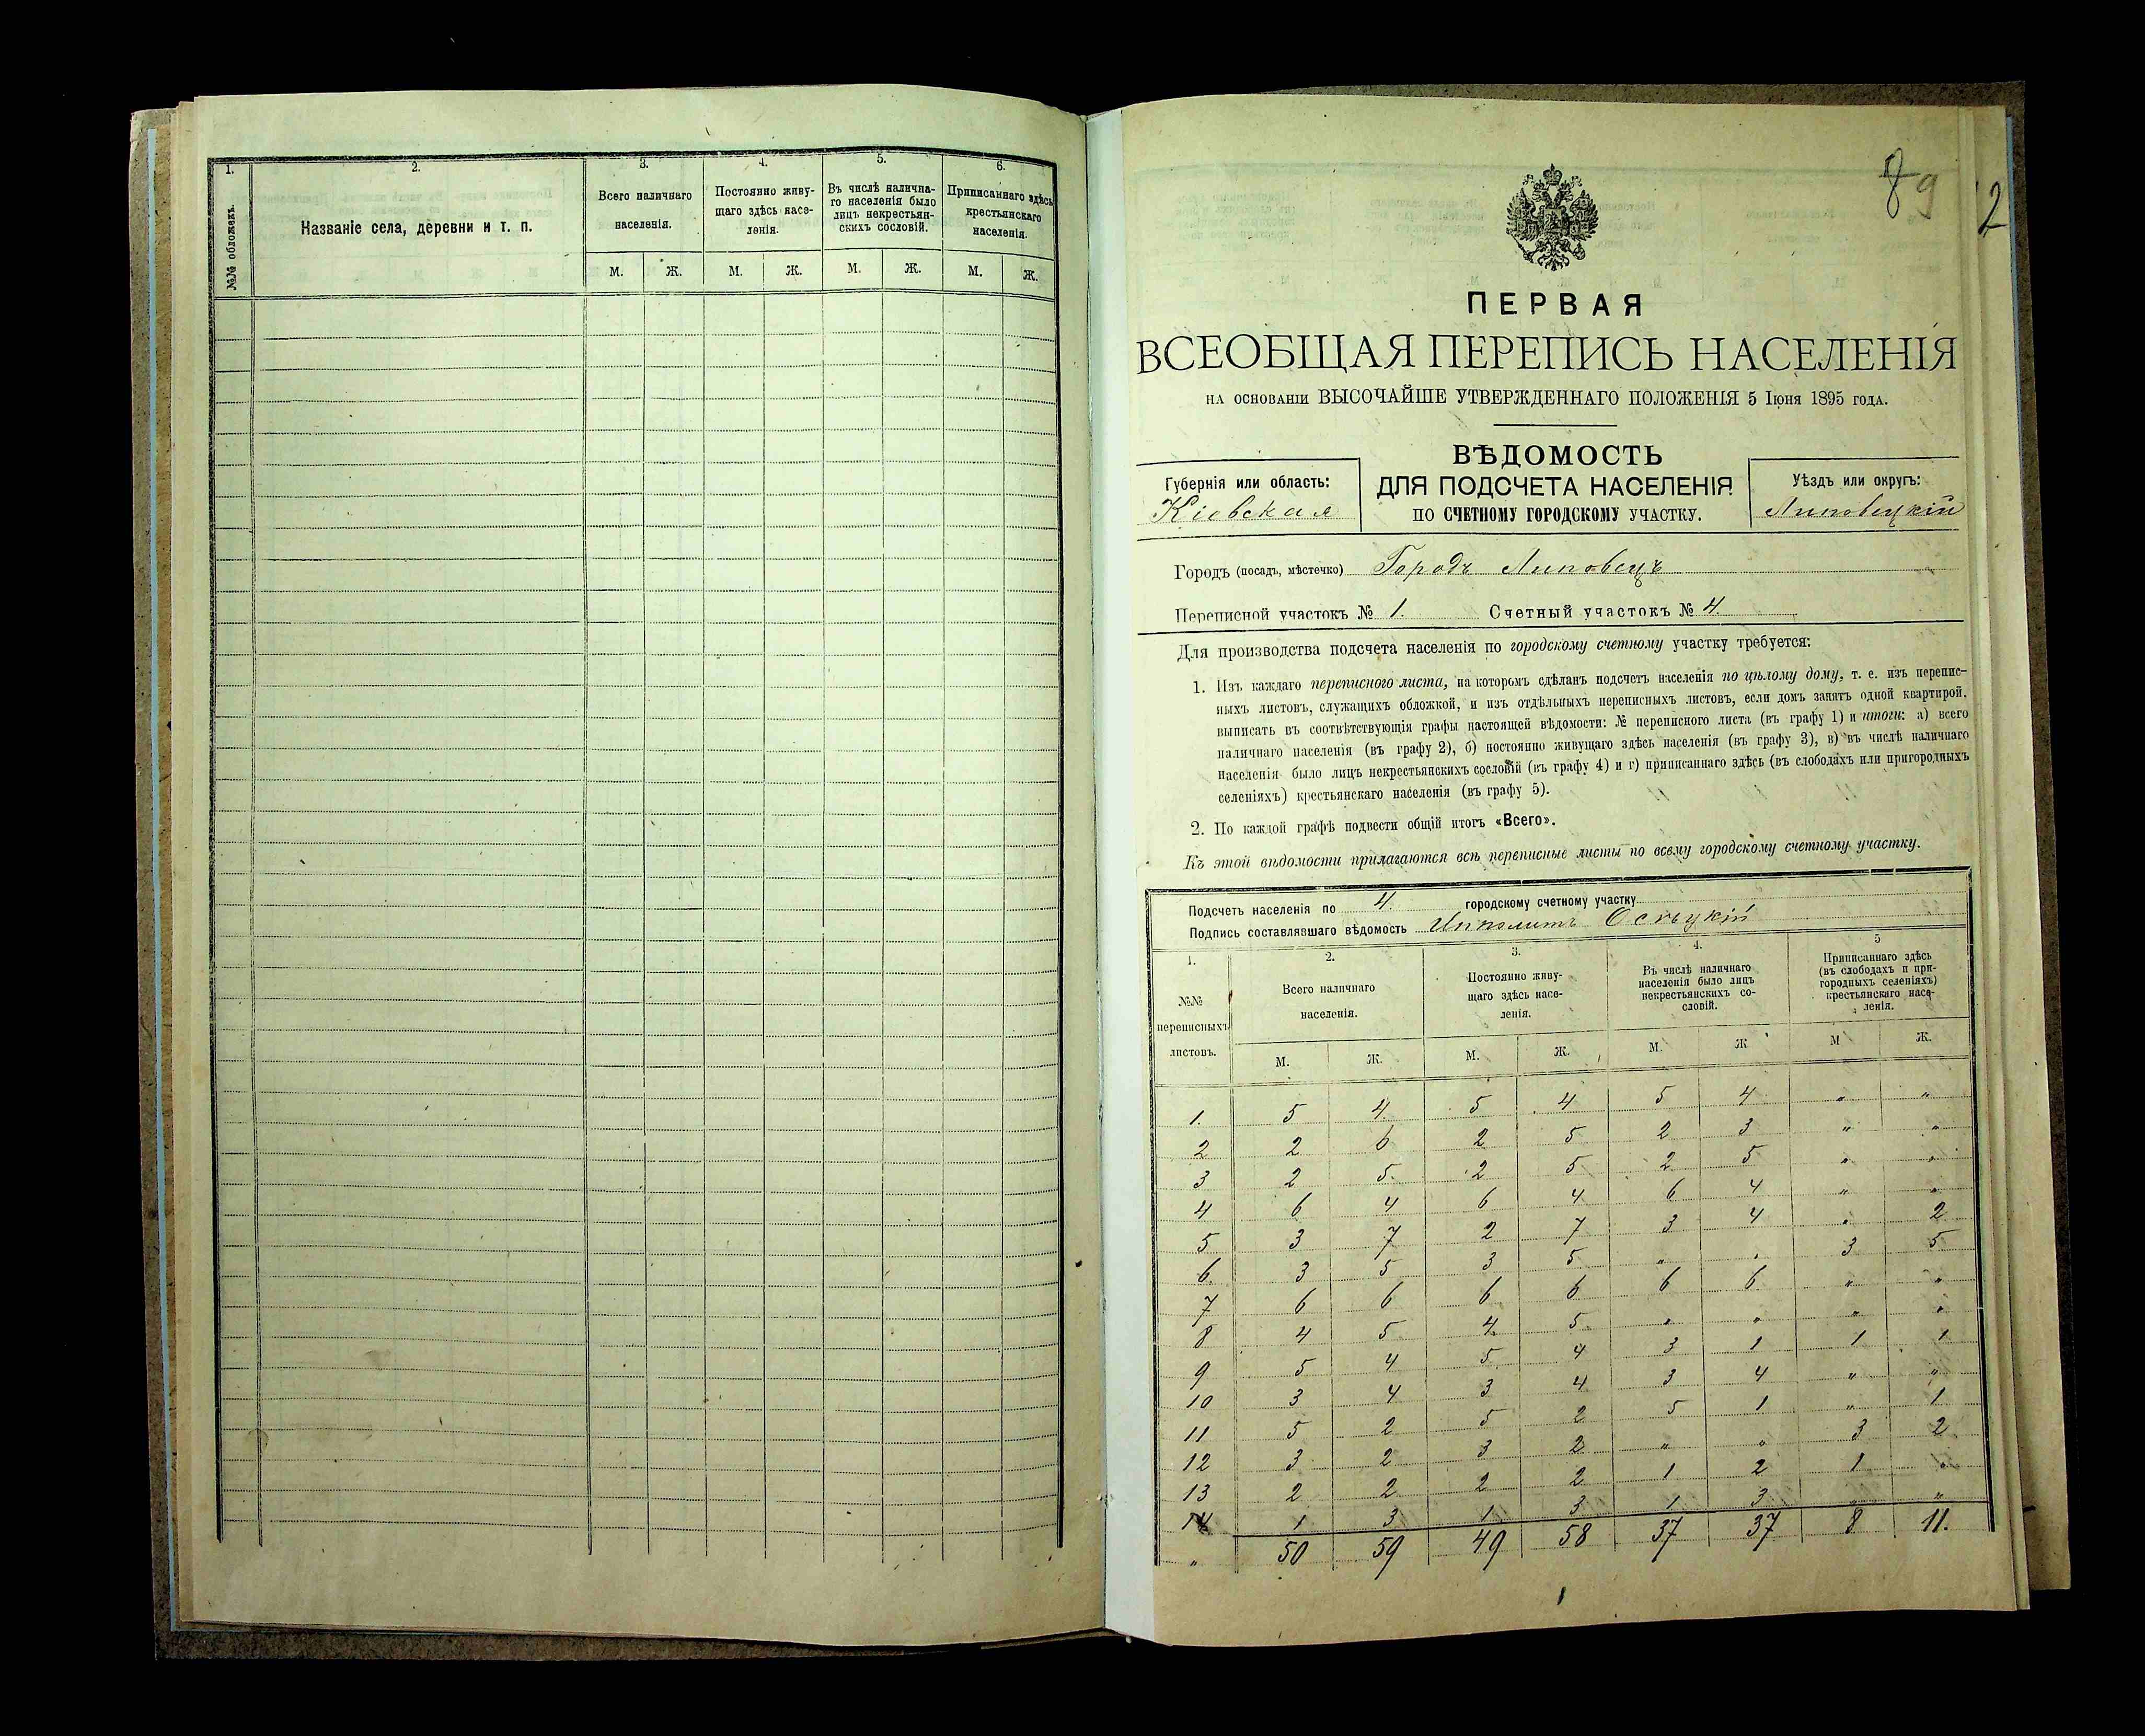 1.
2.
3.
4.
5.
6.
№№ обложекъ.
Названіе села, деревни и т. п.
Всего наличнаго
населенія.
Постоянно живу-
щаго здѣсь насе-
ленія.
Въ числѣ налична-
го населенія было
лицъ некрестьян-
скихъ сословій.
Приписаннаго здѣсь
крестьянскаго
населенія.
М. Ж. М. Ж. М. Ж. М. Ж.
89 2
ПЕРВАЯ
ВСЕОБЩАЯ ПЕРЕПИСЬ НАСЕЛЕНІЯ
НА ОСНОВАНІИ ВЫСОЧАЙШЕ УТВЕРЖДЕННАГО ПОЛОЖЕНІЯ 5 Іюня 1895 ГОДА.
Губернія или область:
Кіевская
ВѢДОМОСТЬ
ДЛЯ ПОДСЧЕТА НАСЕЛЕНІЯ
ПО СЧЕТНОМУ ГОРОДСКОМУ УЧАСТКУ.
Уѣздъ или округъ:
Липовецкій
Городъ (посадъ, мѣстечко) Городъ Липовецъ
Переписной участокъ № 1. Счетный участокъ № 4.
Для производства подсчета населенія по городскому счетному участку требуется:
1. Изъ каждаго переписного листа, на которомъ сдѣланъ подсчетъ населенія по цѣлому дому, т. е. изъ перепис-
ныхъ листовъ, служащихъ обложкой, и изъ отдѣльныхъ переписныхъ листовъ, если домъ занятъ одной квартирой,
выписать въ соотвѣтствующія графы настоящей вѣдомости: № переписного листа (въ графу 1) и итоги: а) всего
наличнаго населенія (въ графу 2), б) постоянно живущаго здѣсь населенія (въ графу 3), в) въ числѣ наличнаго
населенія было лицъ некрестьянскихъ сословій (въ графу 4) и г) приписаннаго здѣсь (въ слободахъ или пригородныхъ
селеніяхъ) крестьянскаго населенія (въ графу 5).
2. По каждой графѣ подвести общій итогъ «Всего».
Къ этой вѣдомости прилагаются всѣ переписные листы по всему городскому счетному участку.
Подсчетъ населенія по 4. городскому счетному участку
Подпись составлявшаго вѣдомость Ипполитъ Осѣцкій
1. 2. 3. 4. 5
№№
переписныхъ
листовъ.
Всего наличнаго
населенія.
Постоянно живу-
щаго здѣсь насе-
ленія.
Въ числѣ наличнаго
населенія было лицъ
некрестьянскихъ со-
словій.
Приписаннаго здѣсь
(въ слободахъ и при-
городныхъ селеніяхъ)
крестьянскаго насе-
ленія.
М. Ж. М. Ж. М. Ж М Ж.
1. 5 4 5 4 5 4 " "
2 2 6 2 5 2 3 " "
3 2 5 2 5 2 5 " "
4 6 4 6 4 6 4 " "
5 3 7 2 7 3 4 " 2
6. 3 5 3 5 " " 3 5
7 6 6 6 6 6 6 " "
8 4 5 4 5 " " " "
9 5 4 5 4 3 1 1 1
10 3 4 3 4 3 4 " "
11 5 2 5 2 5 1 " 1
12 3 2 3 2 " " 3 2
13 2 2 2 2 1 2 1 "
14 1 3 1 3 1 3 " "
" 50 59 49 58 37 37 8 11.